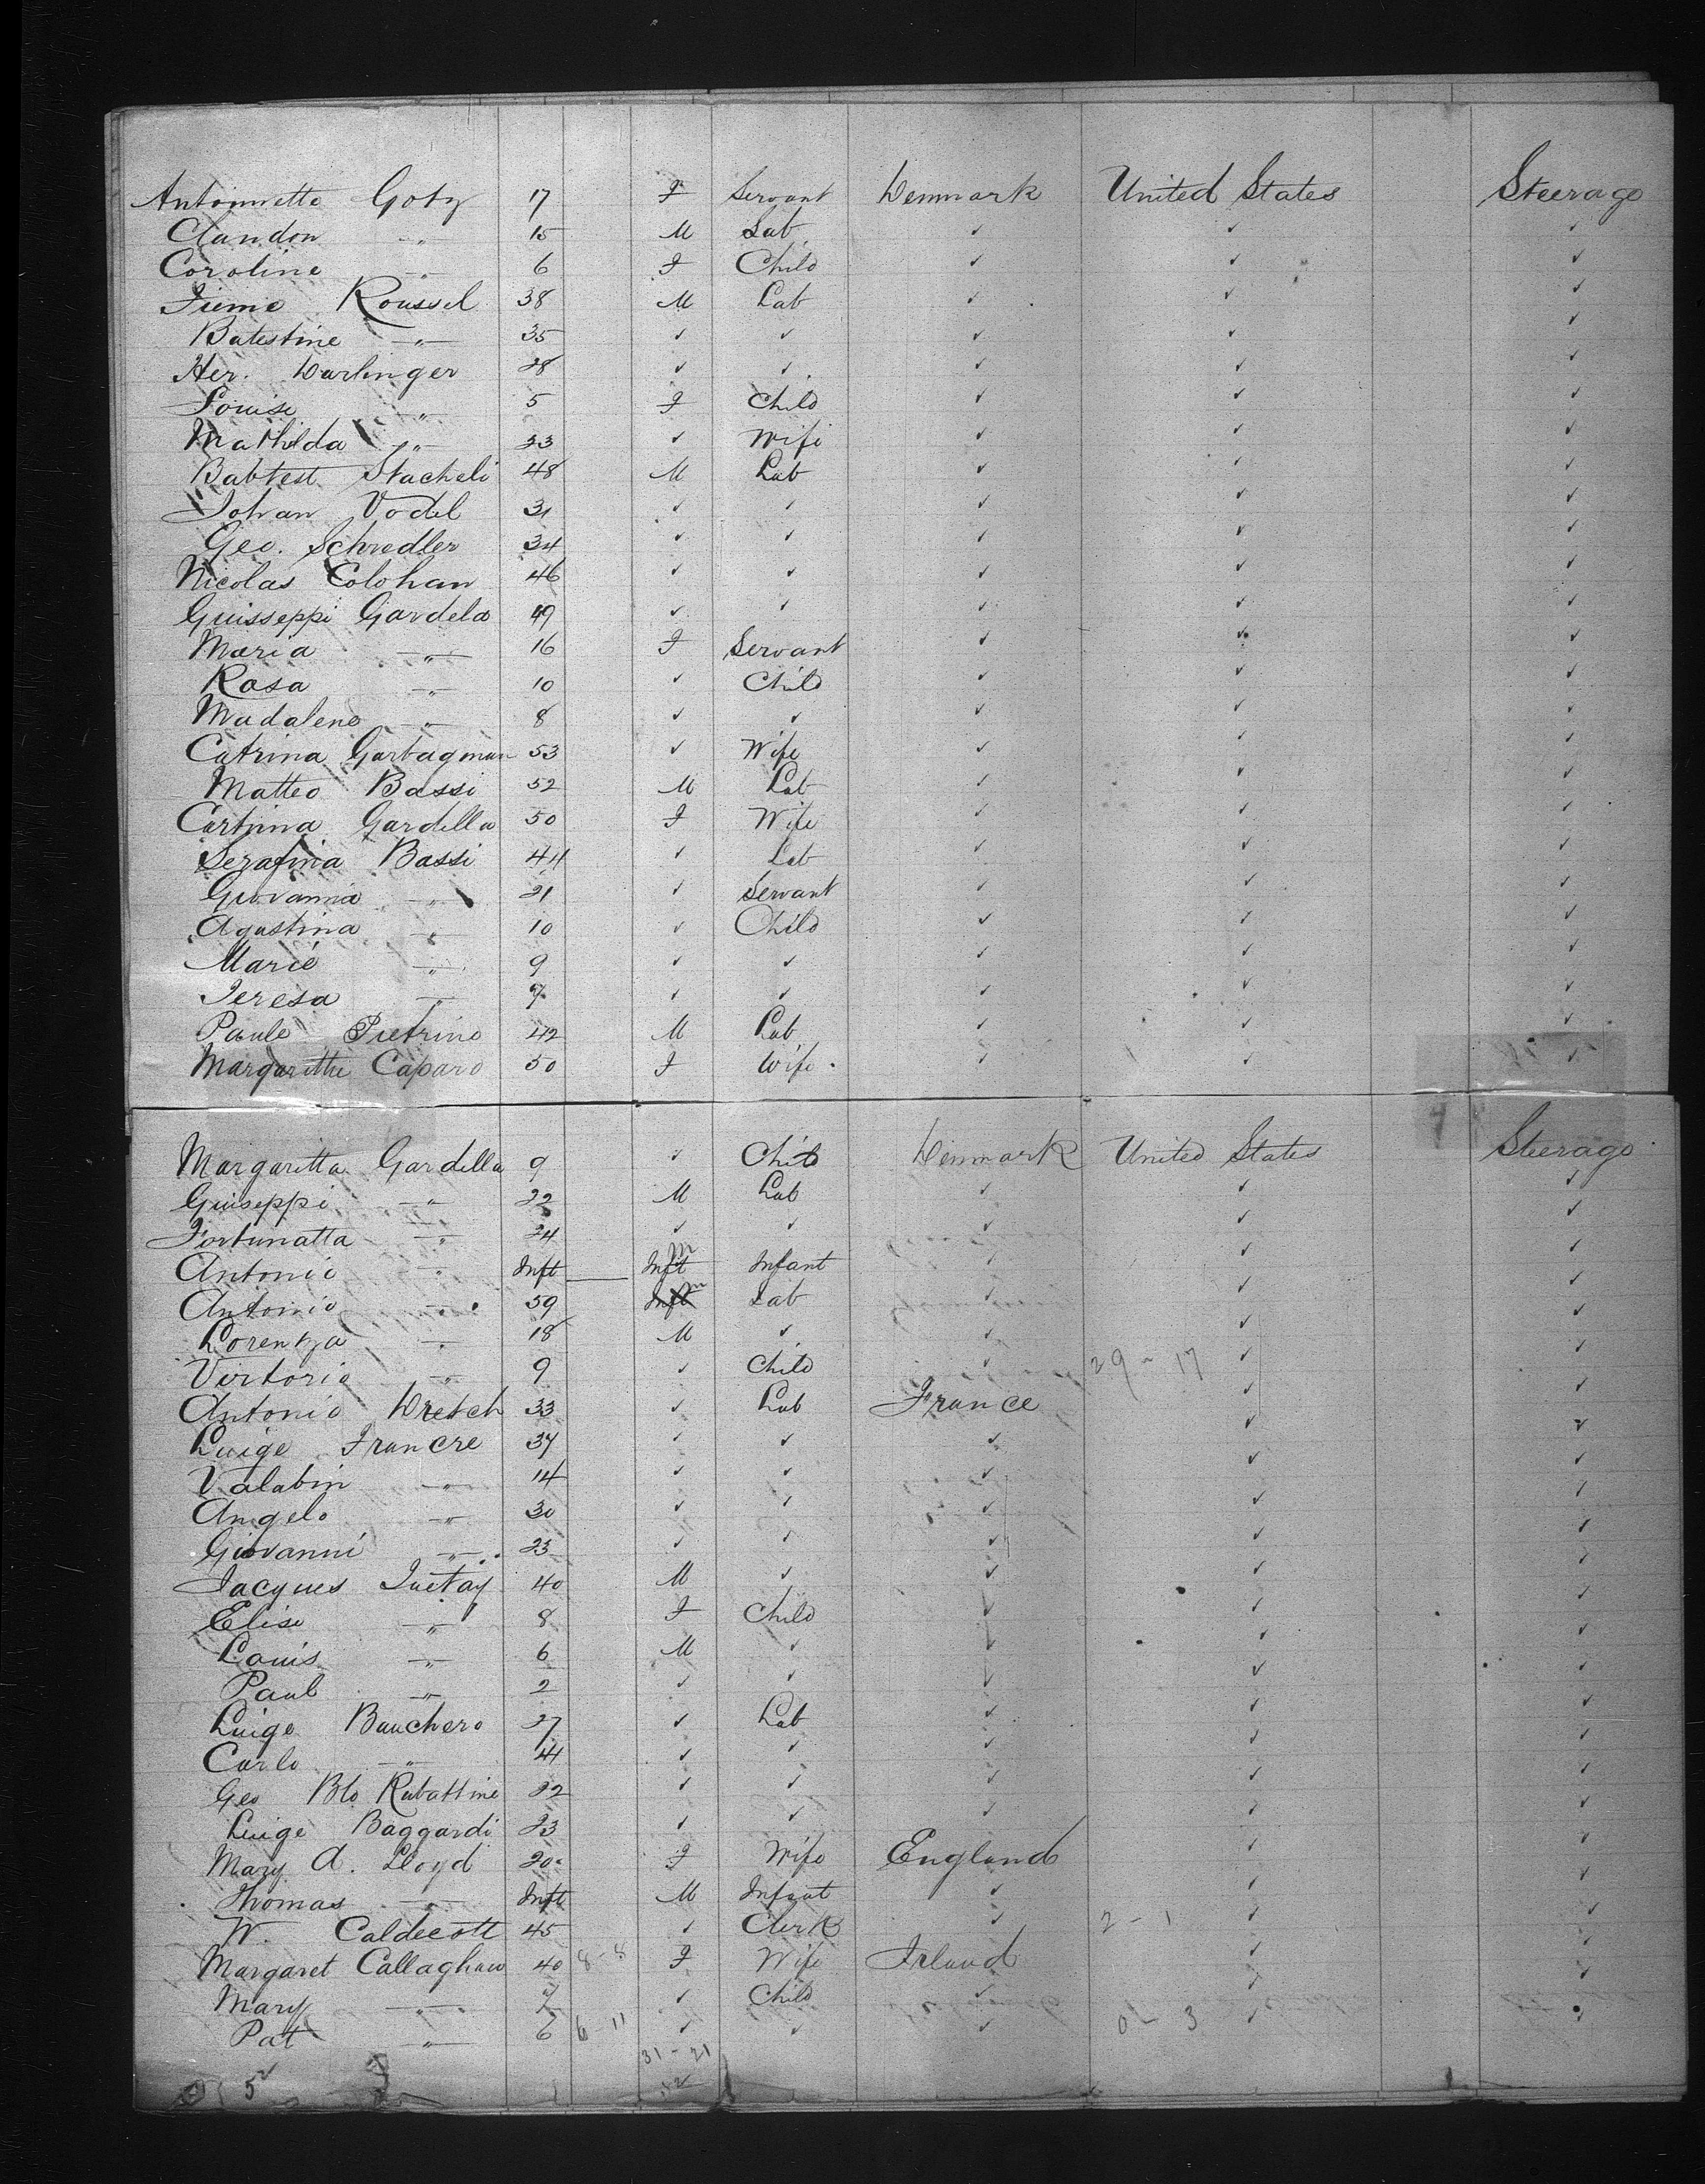 Antoinnette Goty 17 F Servant Denmark United States Steerage
Claudon " 15 M Lab ✓ ✓ ✓
Coroline " 6 F Child ✓ ✓ ✓
Roussel 38 M Lab ✓ ✓ ✓
Batestine " 35 ✓ ✓ ✓ ✓ ✓
Her. Darlinger 28 ✓ ✓ ✓ ✓ ✓
Louise " 5 F Child ✓ ✓ ✓
Mathilda " 33 ✓ Wife ✓ ✓ ✓
Babtest Stacheli 48 M Lab ✓ ✓ ✓
Johan Vodel 31 ✓ ✓ ✓ ✓ ✓
Geo. Schredler 34 ✓ ✓ ✓ ✓ ✓
Nicolas Colohan 46 ✓ ✓ ✓ ✓ ✓
Guisseppi Gardela 49 ✓ ✓ ✓ ✓ ✓
Maria " 16 F Servant ✓ ✓ ✓
Rosa " 10 ✓ Child ✓ ✓ ✓
Madalene " 8 ✓ ✓ ✓ ✓ ✓
Catrina Garbagman 53 ✓ Wife ✓ ✓ ✓
Matteo Bassi 52 M Lab ✓ ✓ ✓
Cartrina Gardella 50 F Wife ✓ ✓ ✓
Serafina Bassi 44 ✓ Lab ✓ ✓ ✓
Giovanna " 21 ✓ Servant ✓ ✓ ✓
Agustina " 10 ✓ Child ✓ ✓ ✓
Marie " 9 ✓ ✓ ✓ ✓ ✓
Teresa " 7 ✓ ✓ ✓ ✓ ✓
Paule Pietrino 42 M Lab ✓ ✓ ✓
Margarethe Caparo 50 F Wife ✓ ✓ ✓
Margaritta Gardella 9 ✓ Child Denmark United States Steerage
Guiseppi " 22 M Lab ✓ ✓ ✓
Fortunatta " 24 ✓ ✓ ✓ ✓ ✓
Antonie " Inft M Infant ✓ ✓ ✓
Antonio " 59 M Lab ✓ ✓ ✓
Lorentza " 18 M ✓ ✓ ✓ ✓
Virtorio " 9 ✓ Child ✓ 29 - 17 ✓ ✓
Antonio Dretch 33 ✓ Lab France ✓ ✓
Luige Francre 37 ✓ ✓ ✓ ✓ ✓
Valabin " 14 ✓ ✓ ✓ ✓ ✓
Angelo " 30 ✓ ✓ ✓ ✓ ✓
Giovanni " 23 ✓ ✓ ✓ ✓ ✓
Jacques 40 M ✓ ✓ ✓ ✓
Elise " 8 F Child ✓ ✓ ✓
Louis " 6 M ✓ ✓ ✓ ✓
Paul " 2 ✓ ✓ ✓ ✓ ✓
Luige Bauchero 27 ✓ Lab ✓ ✓ ✓
Carlo " 44 ✓ ✓ ✓ ✓ ✓
Geo Bto Rabattine 22 ✓ ✓ ✓ ✓ ✓
Luige Baggardi 23 ✓ ✓ ✓ ✓ ✓
Mary A. Lloyd 20 F Wife England ✓ ✓
Thomas " Inft M Infant ✓ ✓ ✓
W. Caldecott 45 ✓ Clerk ✓ 2 - 1 ✓ ✓
Margaret Callaghan 40 8-8 F Wife Irland ✓ ✓
Mary " 7 ✓ Child ✓ ✓ ✓
Pat " 6 6-11 ✓ ✓ ✓ 0 - 3 ✓
31 - 21
52 52